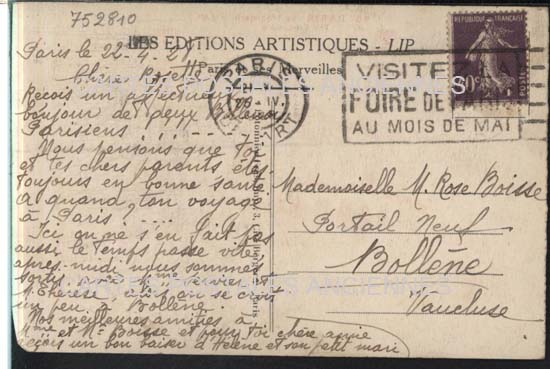 752810
LES EDITIONS ARTISTIQUES - LIP
Paris le 22-4-2
Chère Rosette
Reçois un affectueux
bonjour de deux
Parisiens....
Nous pensons que toi
et tes chers parents êtes
toujours en bonne santé
à quand, ton voyage
à Paris....
Ici on ne s'en fait pas
aussi le temps passe vite
après-midi nous sommes
sortis
M. Thérèse, on se croi
un peu, à Bollène.
Nos meilleures amitiés à
Mme et Mr Boisse et pour toi chère amie
reçois un bon baiser d'Hélène et son petit mari
PARIS
RÉPUBLIQUE FRANÇAISE
POSTES
VISITE
FOIRE DE PARIS
AU MOIS DE MAI
Mademoiselle M. Rose Boisse
Portail Neuf
Bollène
Vaucluse
CARTES POSTALES ANCIENNES